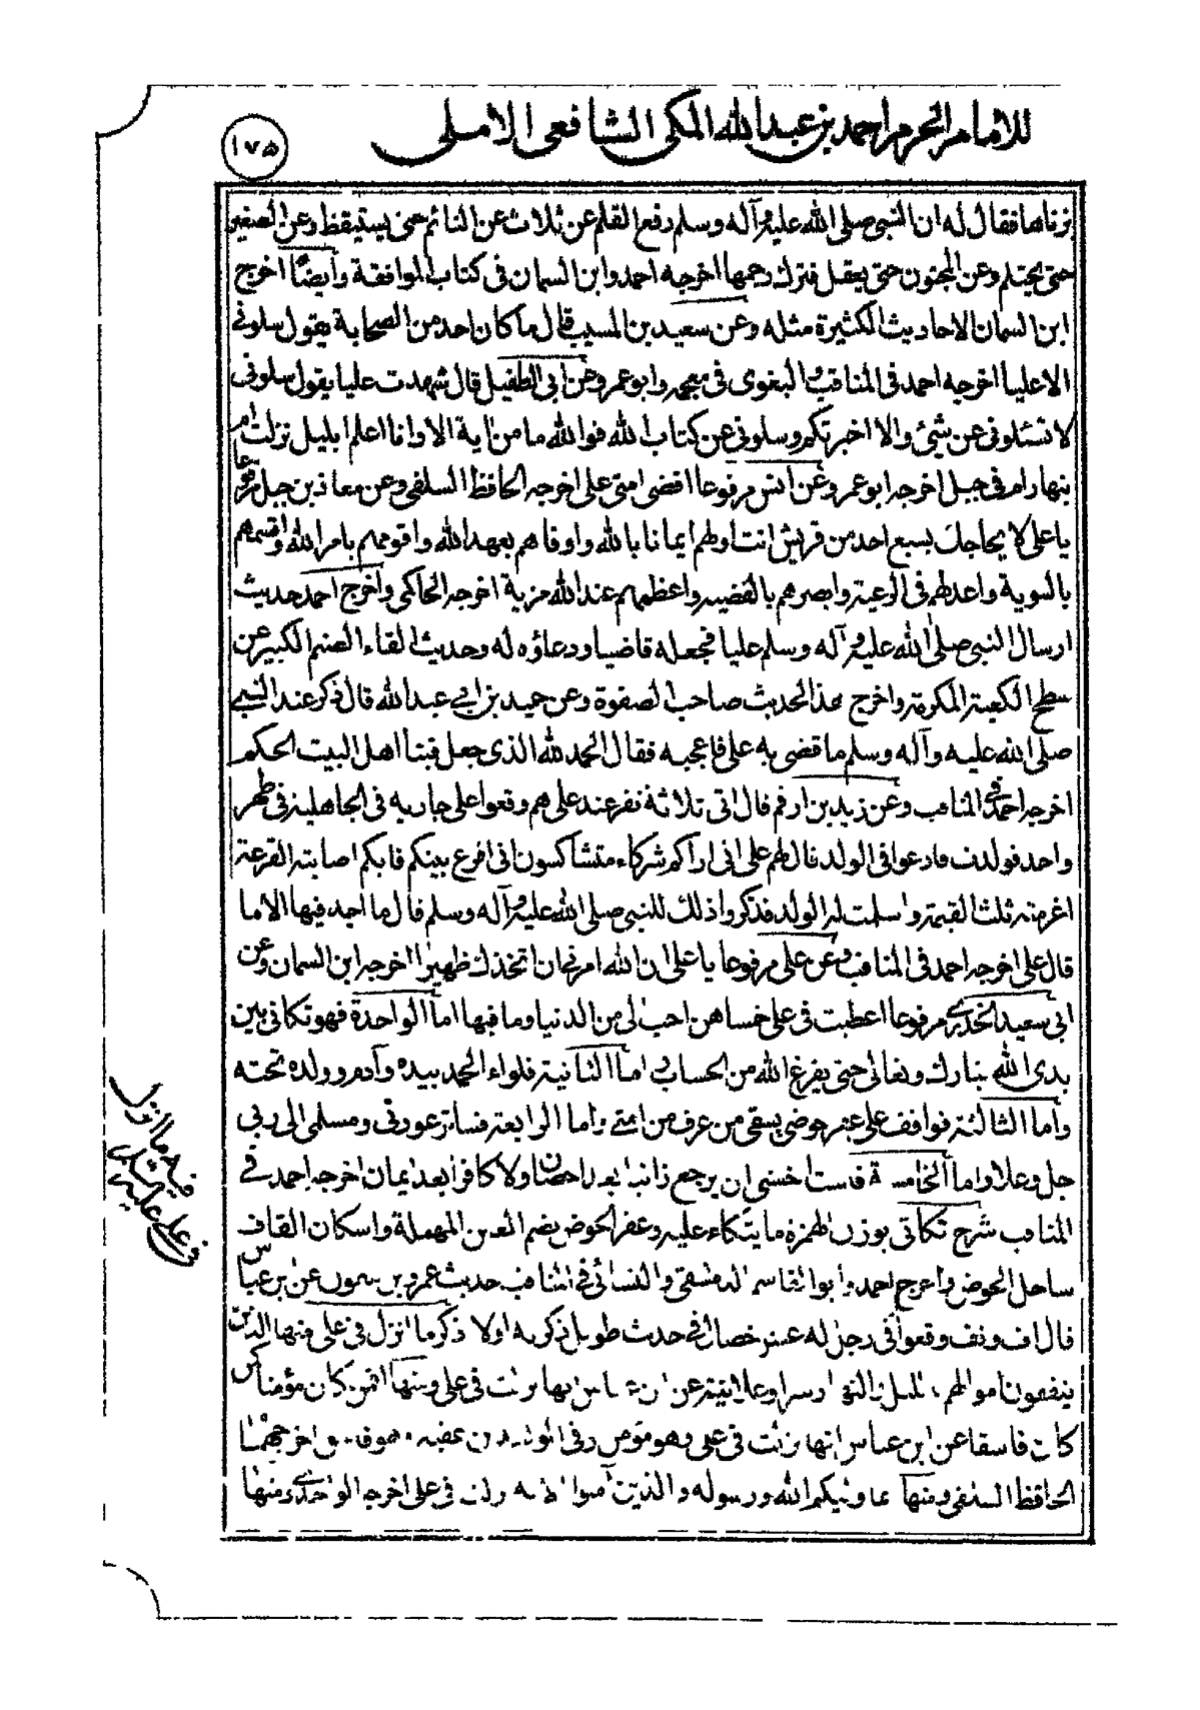 للامام الحرم احمد بن عبد الله المكي الشافعي الاملى
١٧٥
بزناها فقال له ان النبي صلى الله عليه وآله وسلم رفع القلم عن ثلاث عن النائم حتى يستيقظ وعن الصغير
حتى يحتلم وعن المجنون حتى يعقل فترك رجمها اخرجه احمد وابن السمان في كتاب الموافقة وأيضًا اخرج
ابن السمان الاحاديث الكثيرة مثله وعن سعيد بن المسيب قال ما كان احد من الصحابة يقول سلوني
الا عليا اخرجه احمد في المناقب والبغوى في معجمه وابو عمر وعن ابى الطفيل قال شهدت عليا يقول سلونى
لا تسئلونى عن شئ والا اخبرتكم وسلوني عن كتاب الله فوالله ما من آية الا وانا اعلم ابليل نزلت ام
بنهار ام في جبل اخرجه ابو عمر وعن انس مرفوعا اقضى امتى على اخرجه الحافظ السلفى وعن معاذ بن جبل مرفوعا
يا على لا يحاجك بسبع احد من قريش انت اولهم ايمانا بالله واوفاهم بعهد الله واقومهم بامر الله واقسمهم
بالسوية واعدلهم في الرعية وابصرهم بالقضية واعظمهم عند الله مزية اخرجه الحاكمى واخرج احمد حديث
ارسال النبي صلى الله عليه وآله وسلم عليا فجعله قاضيا ودعاؤه له وحديث القاء الصنم الكبير عن
سطح الكعبة المكرمة واخرج هذا الحديث صاحب الصفوة وعن حميد بن ابي عبد الله قال ذكر عند النبي
صلى الله عليه وآله وسلم ما قضى به على فاعجبه فقال الحمد لله الذى جعل فينا اهل البيت الحكم
اخرجه احمد في المناقب وعن زيد بن ارقم قال اتى ثلاثة نفر عند على هم وقعوا على جاريه في الجاهلية في طهر
واحد فولدت فادعوا في الولد قال لهم على انى اراكم شركاء متشاكسون انى اقرع بينكم فايكم اصابته القرعة
اغرمته ثلث القيمة واسلمت له الولد فذكروا ذلك للنبي صلى الله عليه وآله وسلم قال ما اجد فيها الا ما
قال على اخرجه احمد في المناقب وعن على مرفوعا يا على ان الله امرنى ان اتخذك ظهيرا اخرجه ابن السمان وعن
ابى سعيد الخدرى مرفوعا اعطيت في على خمسا هن احب لى من الدنيا وما فيها اما الواحدة فهو تكاتى بين
يدى الله تبارك وتعالى حتى يفرغ الله من الحساب اما الثانية فلواء الحمد بيده وآدم وولده تحته
واما الثالثة فواقف على عقر حوضى يسقى من عرف من امتى واما الرابعة فساتر عورتى ومسلمى الى ربى
جل وعلا واما الخامسة فلست اخشى ان يرجع زانيا بعد احصان ولا كافرا بعد ايمان اخرجه احمد في
المناقب شرح تكاتى بوزن الهمزة ما يتكاء عليه وعقر الحوض بضم العين المهملة واسكان القاف
ساحل الحوض واخرج احمد وابو القاسم الدمشقى والنسائى في المناقب حديث عمرو بن ميمون عن ابن عباس
قال اف وتف وقعوا فى رجل له عشر خصال في حديث طويل ذكر به اولا ذكر ما انزل في على منها الذين
ينفقون اموالهم بالليل والنهار سرا وعلانية عن ابن عباس انها نزلت في على ومنها افمن كان مؤمنا كمن
كان فاسقا عن ابن عباس انها نزلت في على وهو مؤمن وفى الوليد بن عقبه واخرجهما
الحافظ السلفى ومنها انما وليكم الله ورسوله والذين آمنوا نزلت في على اخرجه الواحدى ومنها
فيه ما انزل
في على عليه السلام